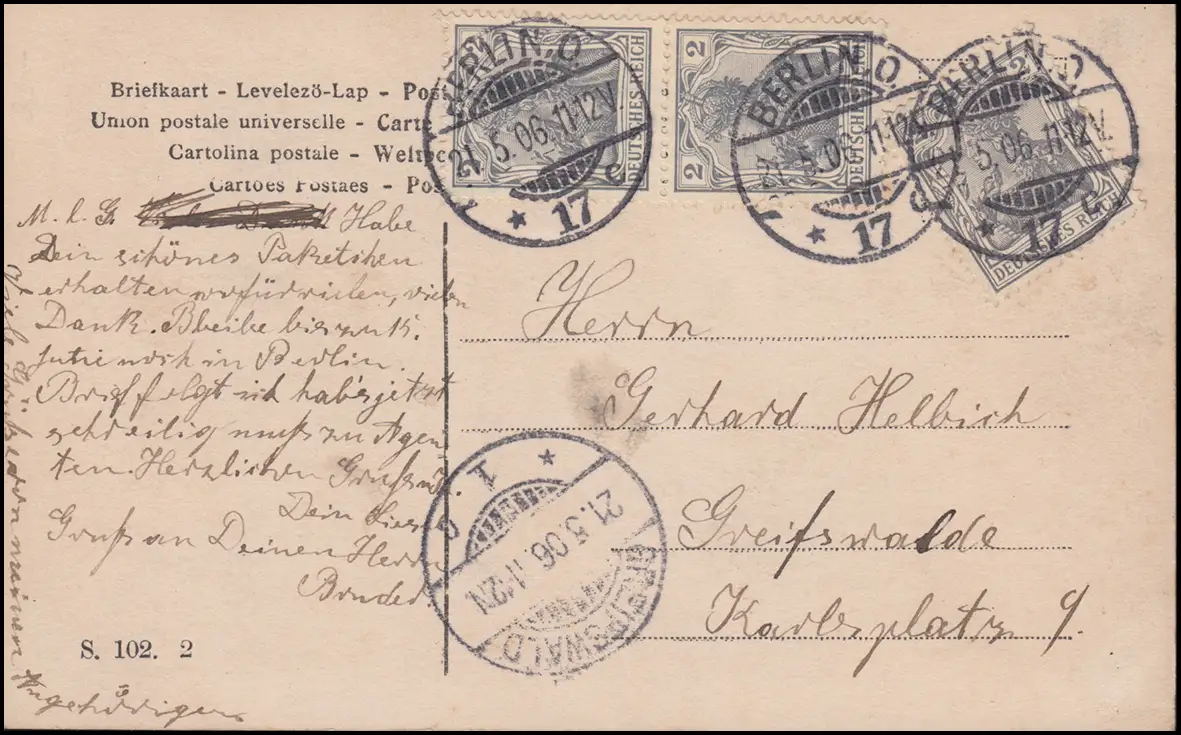 Briefkaart - Levelezö-Lap - Post
Union postale universelle - Carte
Cartolina postale - Weltpo
Cartões Postaes - Pos
M. l. G. Habe
Dein schönes Paketchen
erhalten wofür vielen, vielen
Dank. Bbeibe bis zu 15.
noch in Berlin.
Brief folgt ich hab's jetzt
sehr eilig muß zu Agen
ten. Herzlichen Gruß
Dein
Gruß an Deinen Herrn
Bruder
Viele Grüße von meinen
Angehörigen
S. 102. 2
2 2
DEUTSCHES REICH
2 2
DEUTSCHES REICH
2
DEUTSCHES REICH
BERLIN, O.
21.5.06. 11-12V.
* 17 c
BERLIN, O.
21.5.06. 11-12V.
* 17
BERLIN, O.
5.06. 11-12V.
* 17
Herrn
Gerhard Helbich
Greifswalde
Karlsplatz 9.
GREIFSWALD
21.5.06. 11-12N.
* 1 c